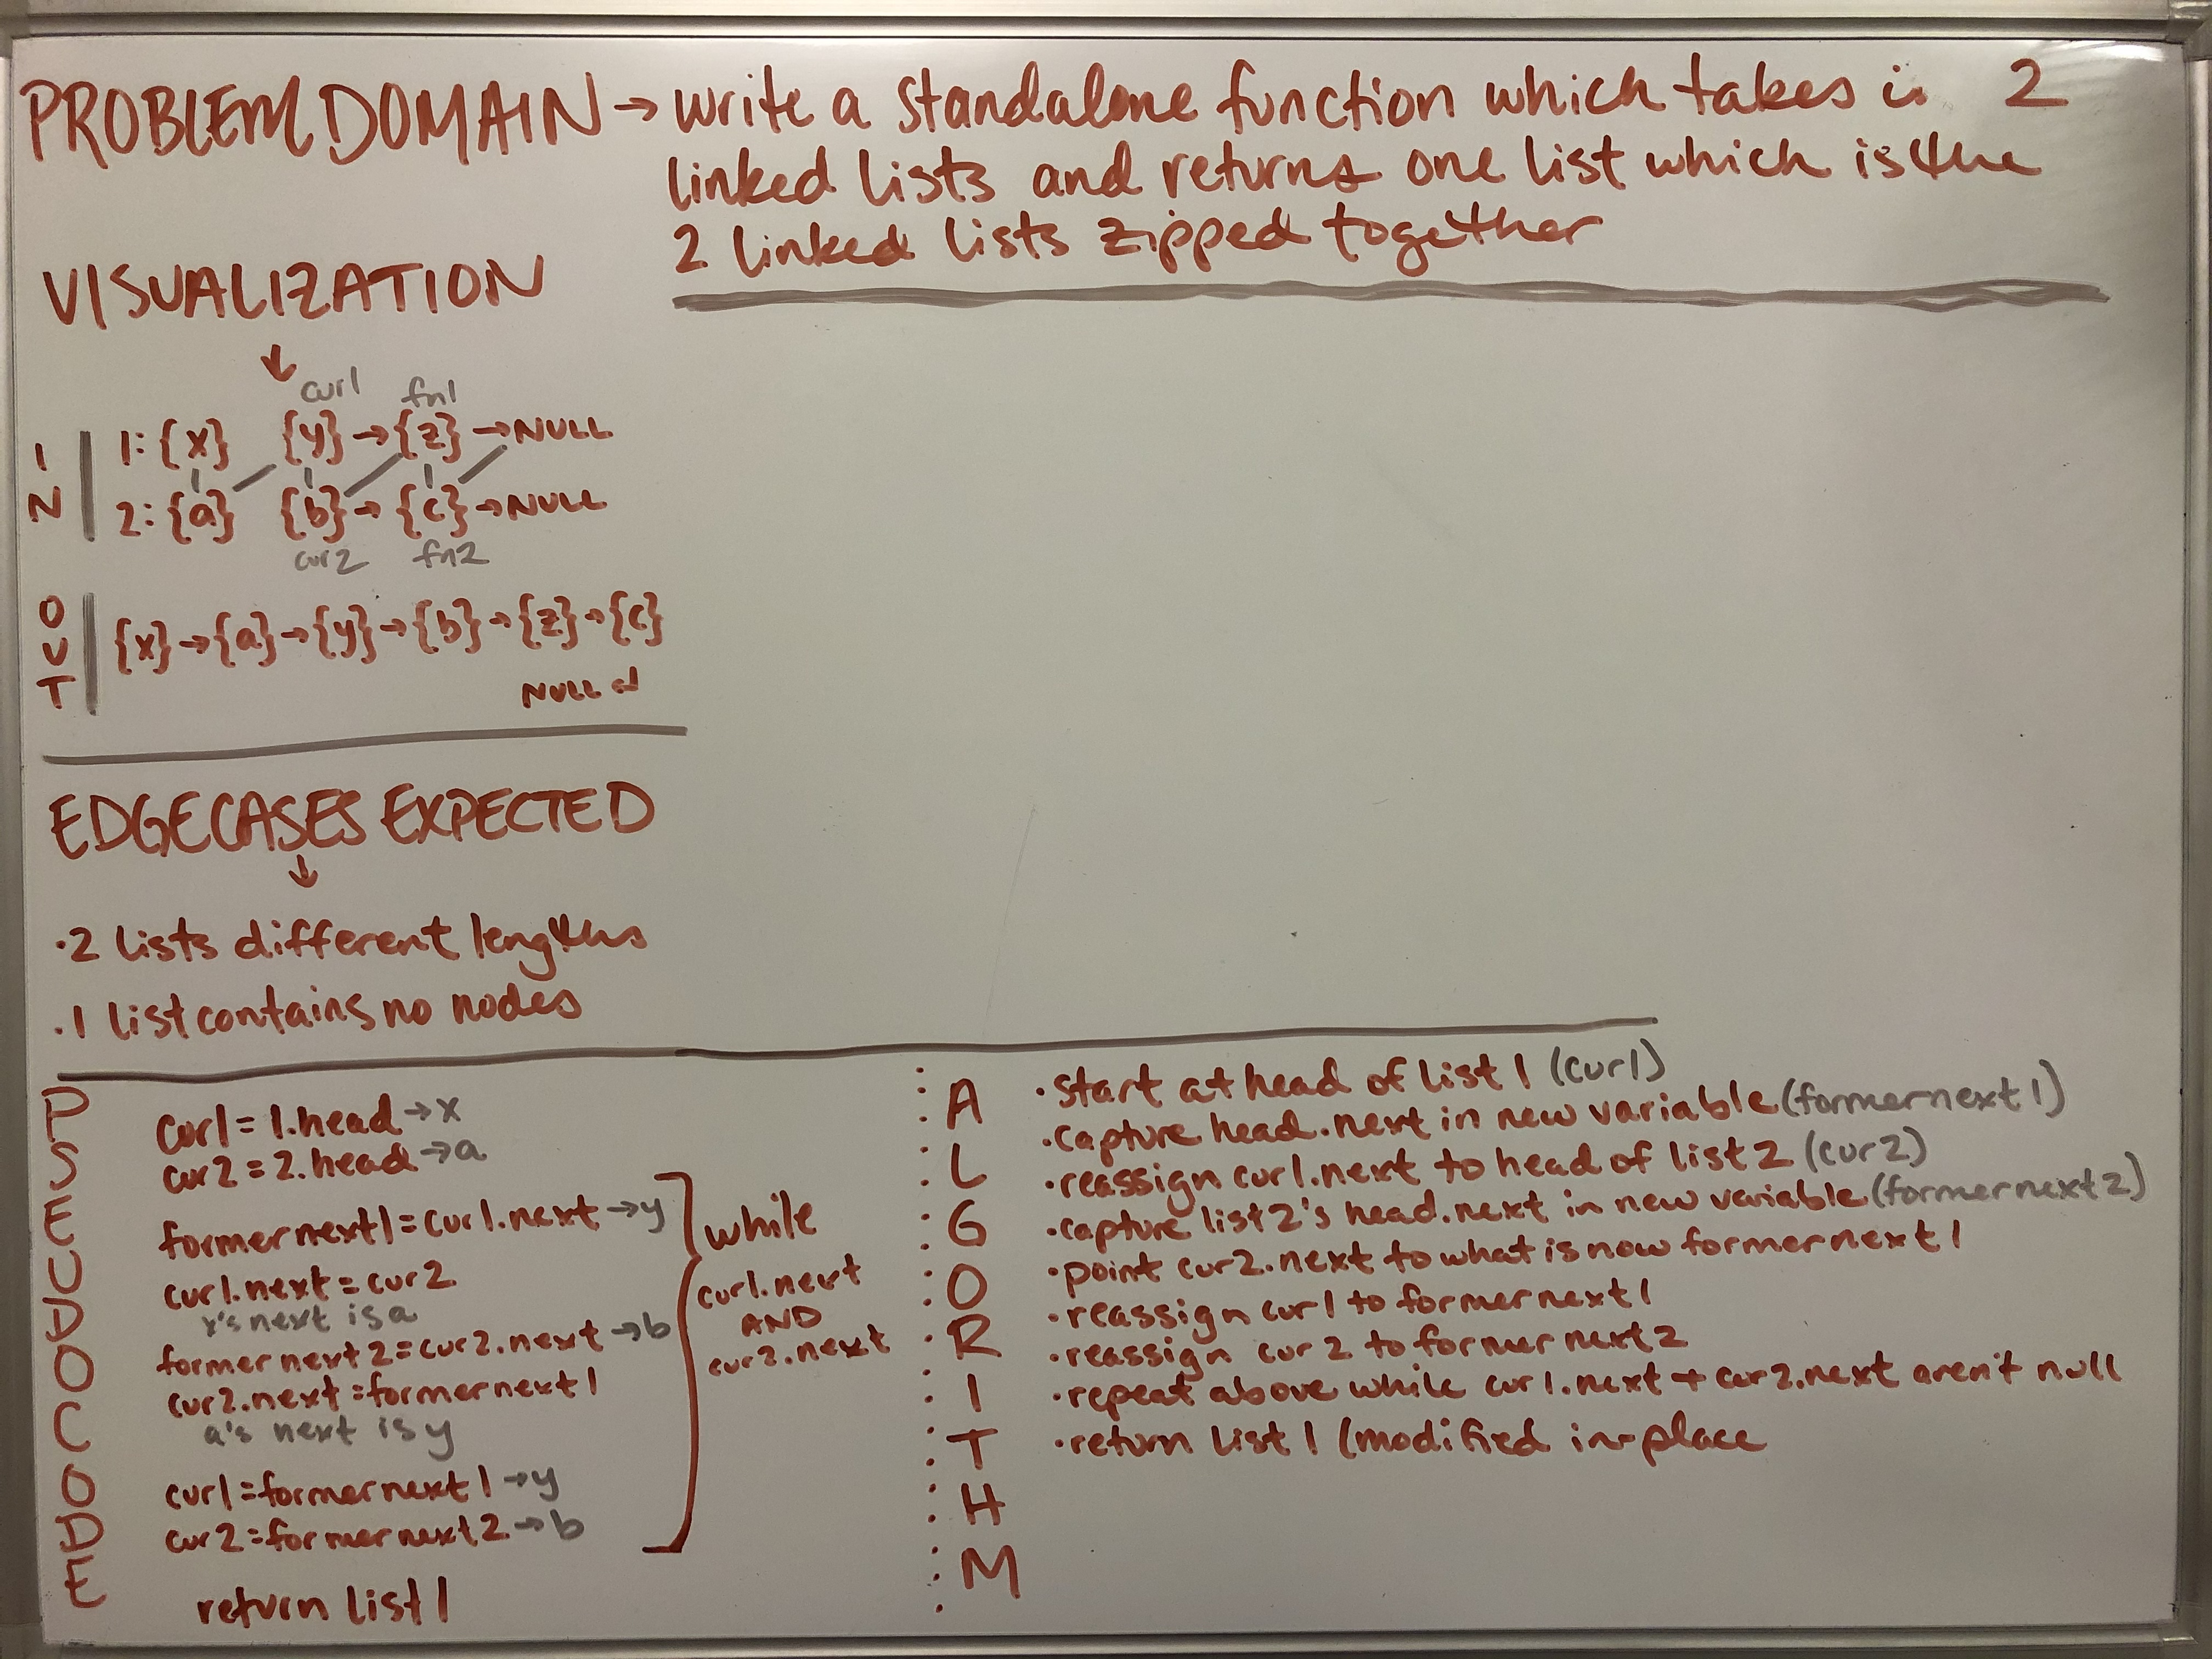 PROBLEM DOMAIN → write a standalone function which takes i 2
linked lists and returns one list which is the
2 linked lists zipped together
VISUALIZATION
↓
cur1 fn1
IN
1: {x} {y} → {z} → NULL
2: {a} {b} → {c} → NULL
cur2 fn2
OUT
{x} → {a} → {y} → {b} → {z} → {c}
NULL ↲
EDGECASES EXPECTED
↓
· 2 lists different lengths
· 1 list contains no nodes
PSEUDOCODE
cur1 = 1.head → x
cur2 = 2.head → a
formernext1 = cur1.next → y
cur1.next = cur2
x's next is a
formernext2 = cur2.next → b
cur2.next = formernext1
a's next is y
cur1 = formernext1 → y
cur2 = formernext2 → b
return list1
while
cur1.next
AND
cur2.next
ALGORITHM
· start at head of list 1 (cur1)
· capture head.next in new variable (formernext1)
· reassign cur1.next to head of list 2 (cur2)
· capture list 2's head.next in new variable (formernext2)
· point cur2.next to what is now formernext1
· reassign cur1 to formernext1
· reassign cur2 to formernext2
· repeat above while cur1.next + cur2.next aren't null
· return list 1 (modified in-place